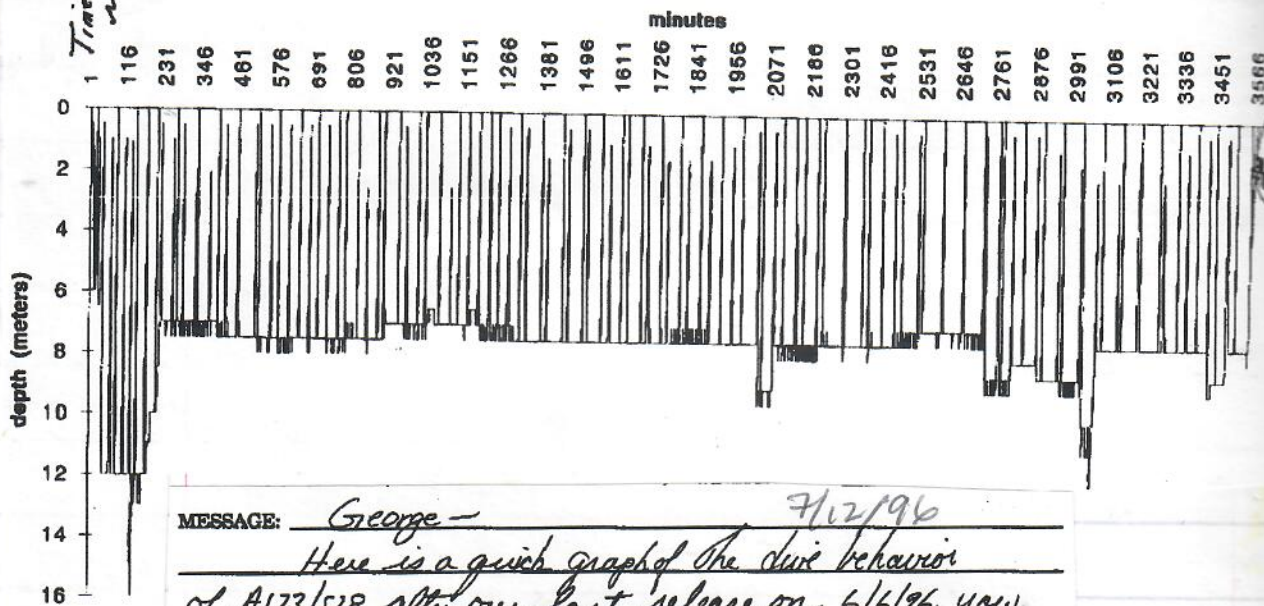 Time
minutes
1 116 231 346 461 576 691 806 921 1036 1151 1266 1381 1496 1611 1726 1841 1956 2071 2186 2301 2416 2531 2646 2761 2876 2991 3106 3221 3336 3451 3566
depth (meters)
0
2
4
6
8
10
12
14
16
MESSAGE: George — 7/12/96
Here is a quick graph of the dive behavior
of after our last release on 6/6/96